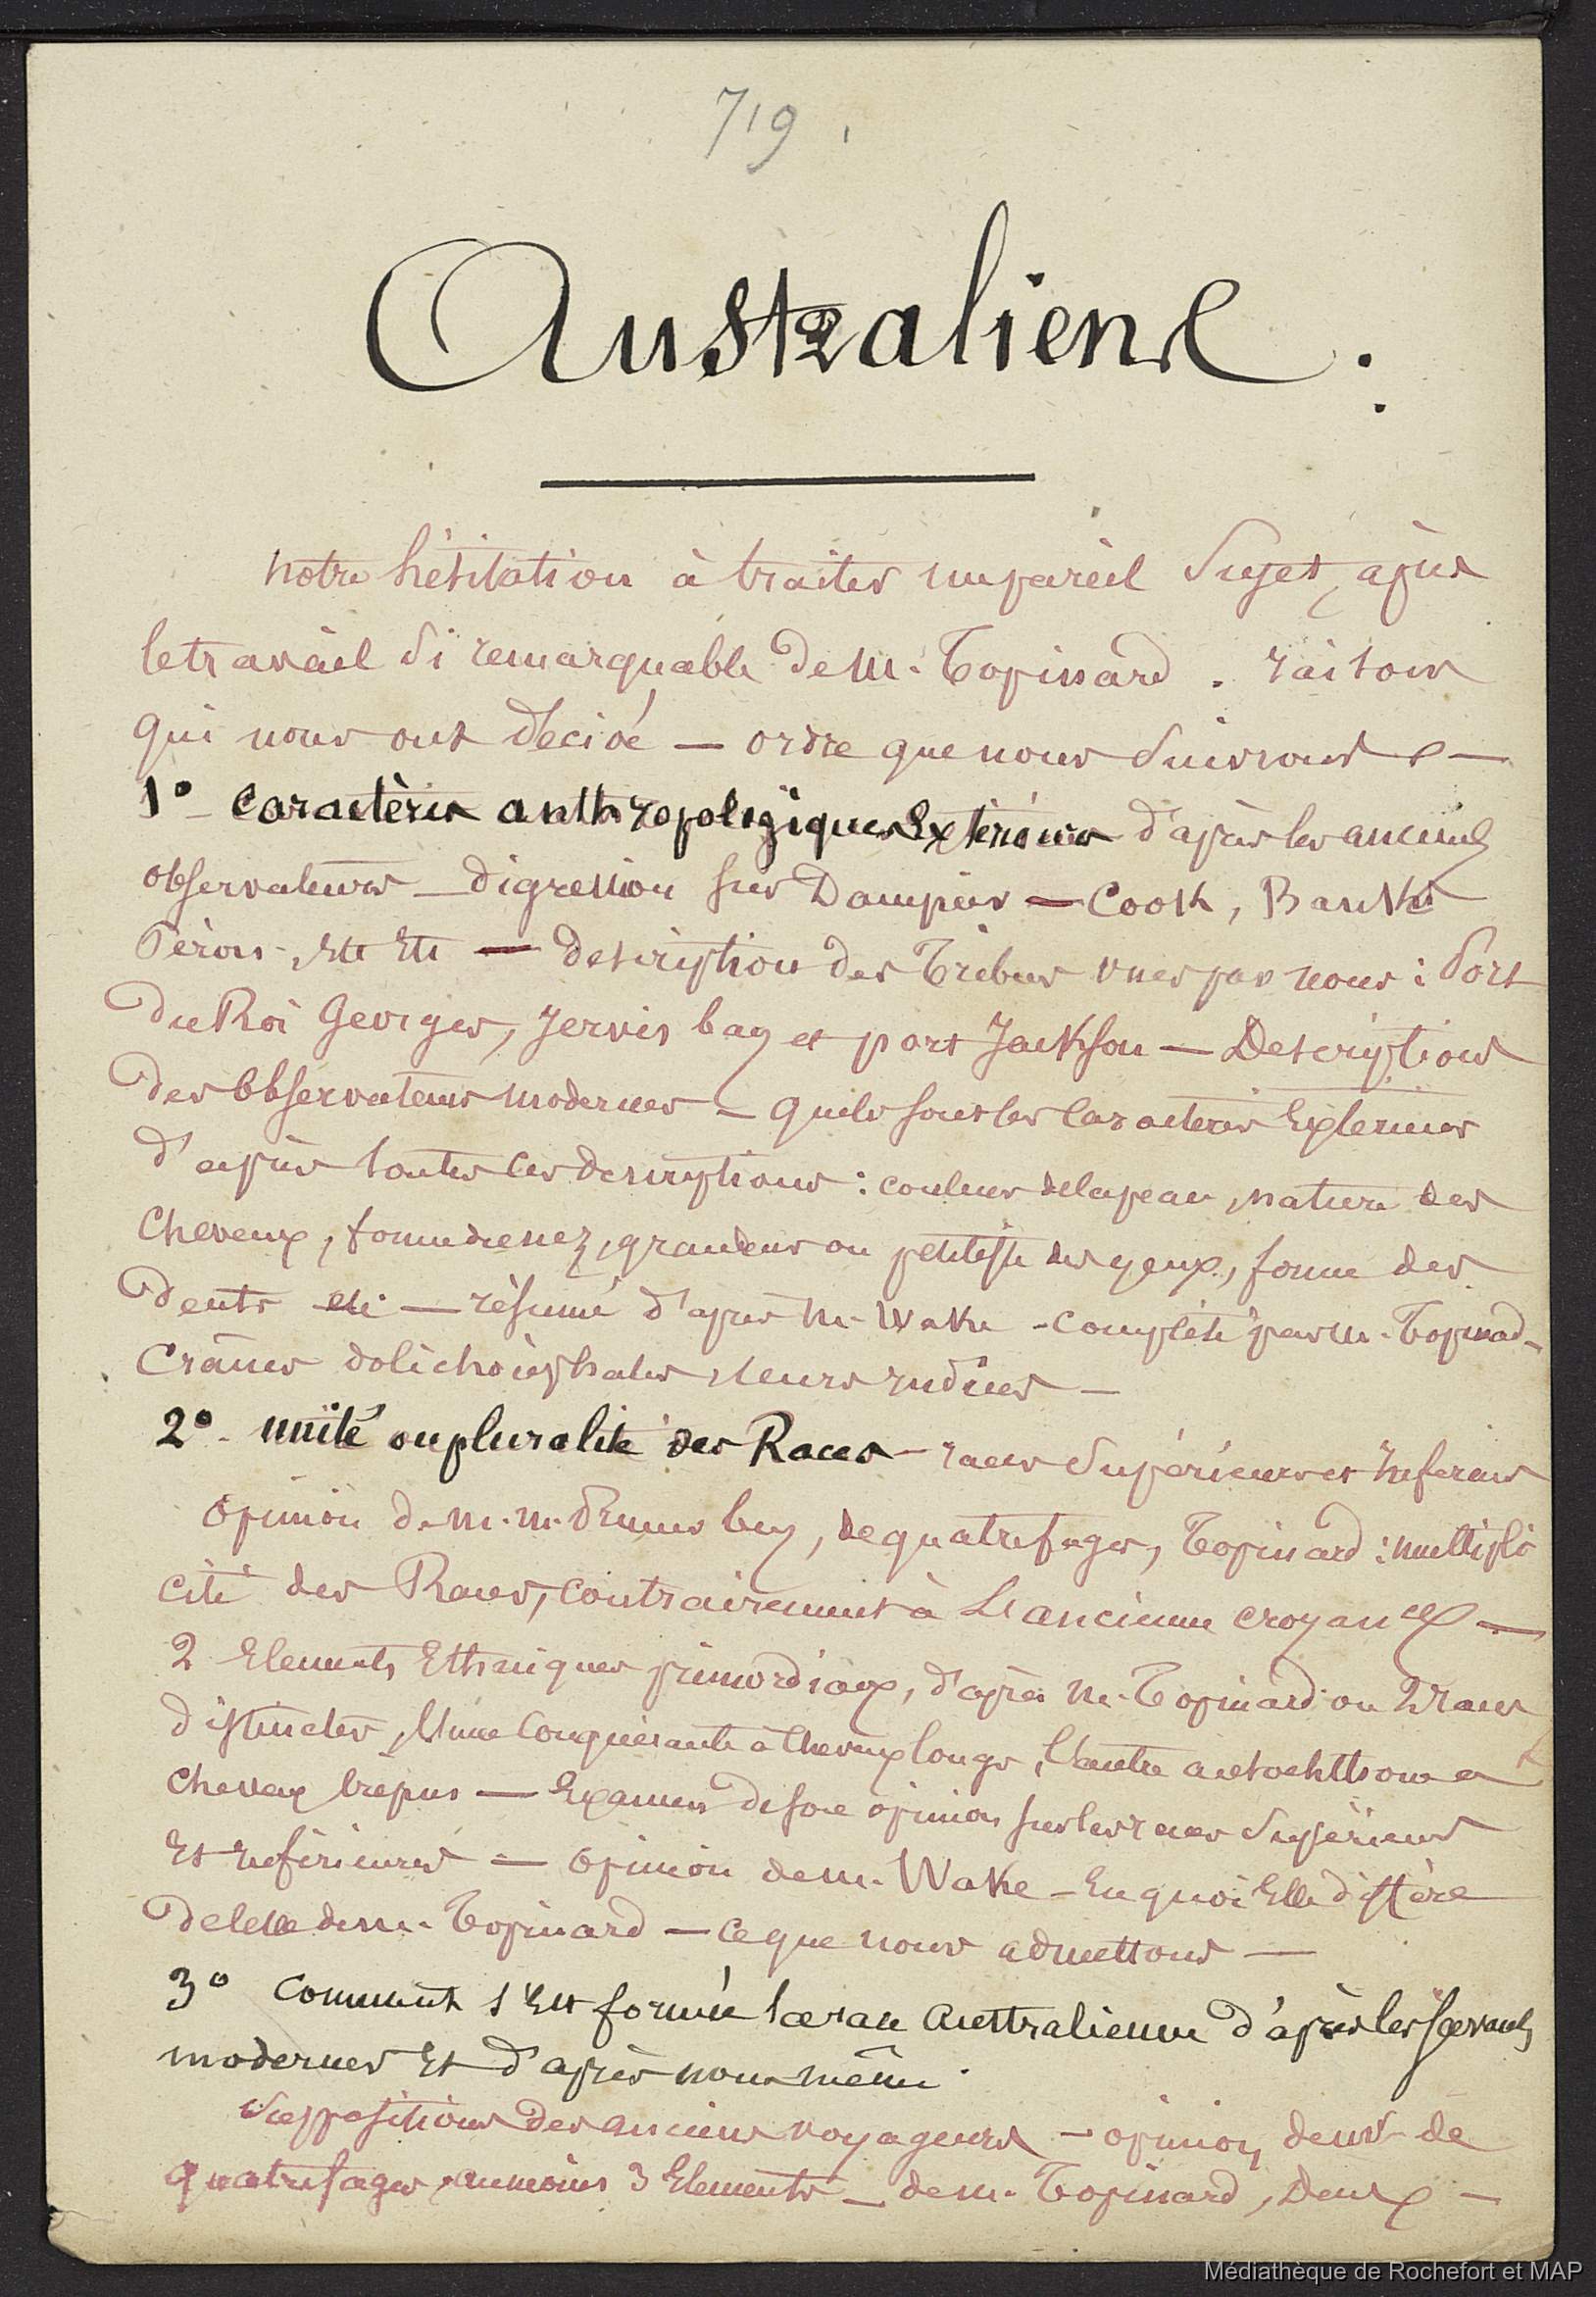 719.
Australiens.
notre hésitation à traiter un pareil sujet, après
le travail si remarquable de M. Topinard. raisons
qui nous ont décidé — ordre que nous suivrons —
1° — caractères anthropologiques Extérieurs d'après les anciens
observateurs — digression sur Dampier — Cook, Banks
Péron, Etc Etc — description des Tribus vues par nous : Port
du Roi Georges, Jervis bay et port Jackson — Descriptions
des Observateurs modernes — quels sont les caractères Extérieurs
d'après toutes ces descriptions : couleur de la peau, nature des
cheveux, forme du nez, grandeur ou petitesse des yeux, forme des
dents etc — résumé d'après M. Wake — complété par M. Topinard —
Crânes dolichocéphales, leurs indices —
2° — unité ou pluralité des Races — races supérieures et inférieures
opinion de M.M. Pruner bey, de quatrefages, Topinard : multipli
cité des Races, contrairement à l'ancienne croyance —
2 Elements Ethniques primordiaux, d'après M. Topinard ou 2 races
distinctes, l'une conquérante à cheveux longs, l'autre autochthone à
cheveux crépus — Examen de son opinion sur les races supérieures
Et inférieures — opinion de M. Wake — En quoi Elle diffère
de celle de M. Topinard — ce que nous admettons —
3° Comment s'Est formée la race Australienne d'après les savants
modernes Et d'après nous même.
suppositions des anciens voyageurs — opinion de Mr de
quatrefages, au moins 3 Elements — de M. Topinard, Deux —
Médiathèque de Rochefort et MAP